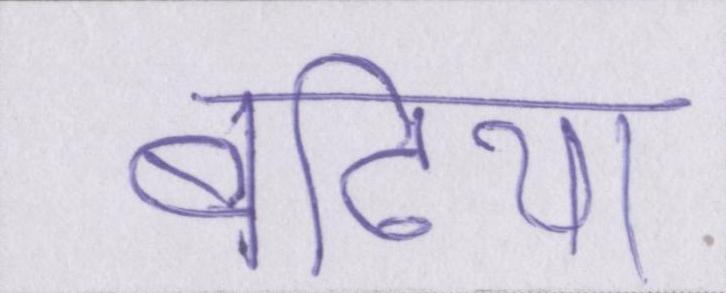 बढिया